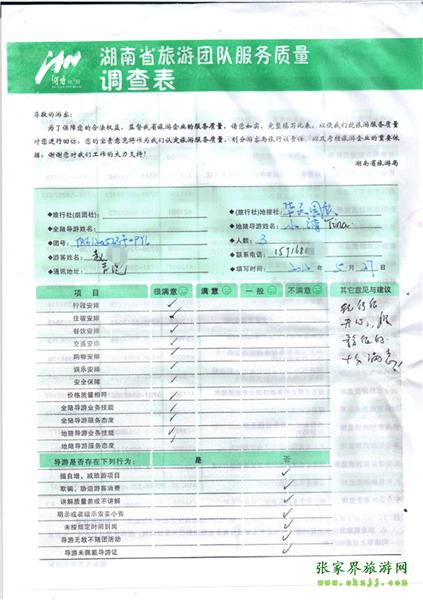 湖南
湖南省旅游团队服务质量
调查表
尊敬的游客：
为了保障您的合法权益，监督我省旅游企业的服务质量，请您如实、完整填写此表，以便我们就旅游服务质量
对您进行回访。您的宝贵意见将作为我们认定旅游服务质量、划分游客与旅行社责任、以及考核旅游企业的重要依
据。谢谢您对我们工作的大力支持！
湖南省旅游局
◆旅行社(组团社): ◆(旅行社)地接社: 华天国旅
◆全陪导游姓名: ◆地陪导游姓名: 小清 Tina
◆团号: ◆人数: 3
◆游客姓名: 赵 ◆联系电话: 1591681
◆通讯地址: ◆填写时间: 2012 年 5 月 27 日
项 目 很满意 满 意 一 般 不满意 其它意见与建议
行程安排
住宿安排
餐饮安排
交通安排
购物安排
娱乐安排
安全保障
价格质量相符
全陪导游业务技能
全陪导游服务态度
地陪导游业务技能
地陪导游服务态度
导游是否存在下列行为: 是 否
擅自增、减旅游项目
欺骗、胁迫游客消费
讲解质量差或不讲解
明示或者暗示索要小费
未按规定时间到岗
导游无故不随团活动
导游未佩戴导游证
张家界旅游网
www.okzjj.com